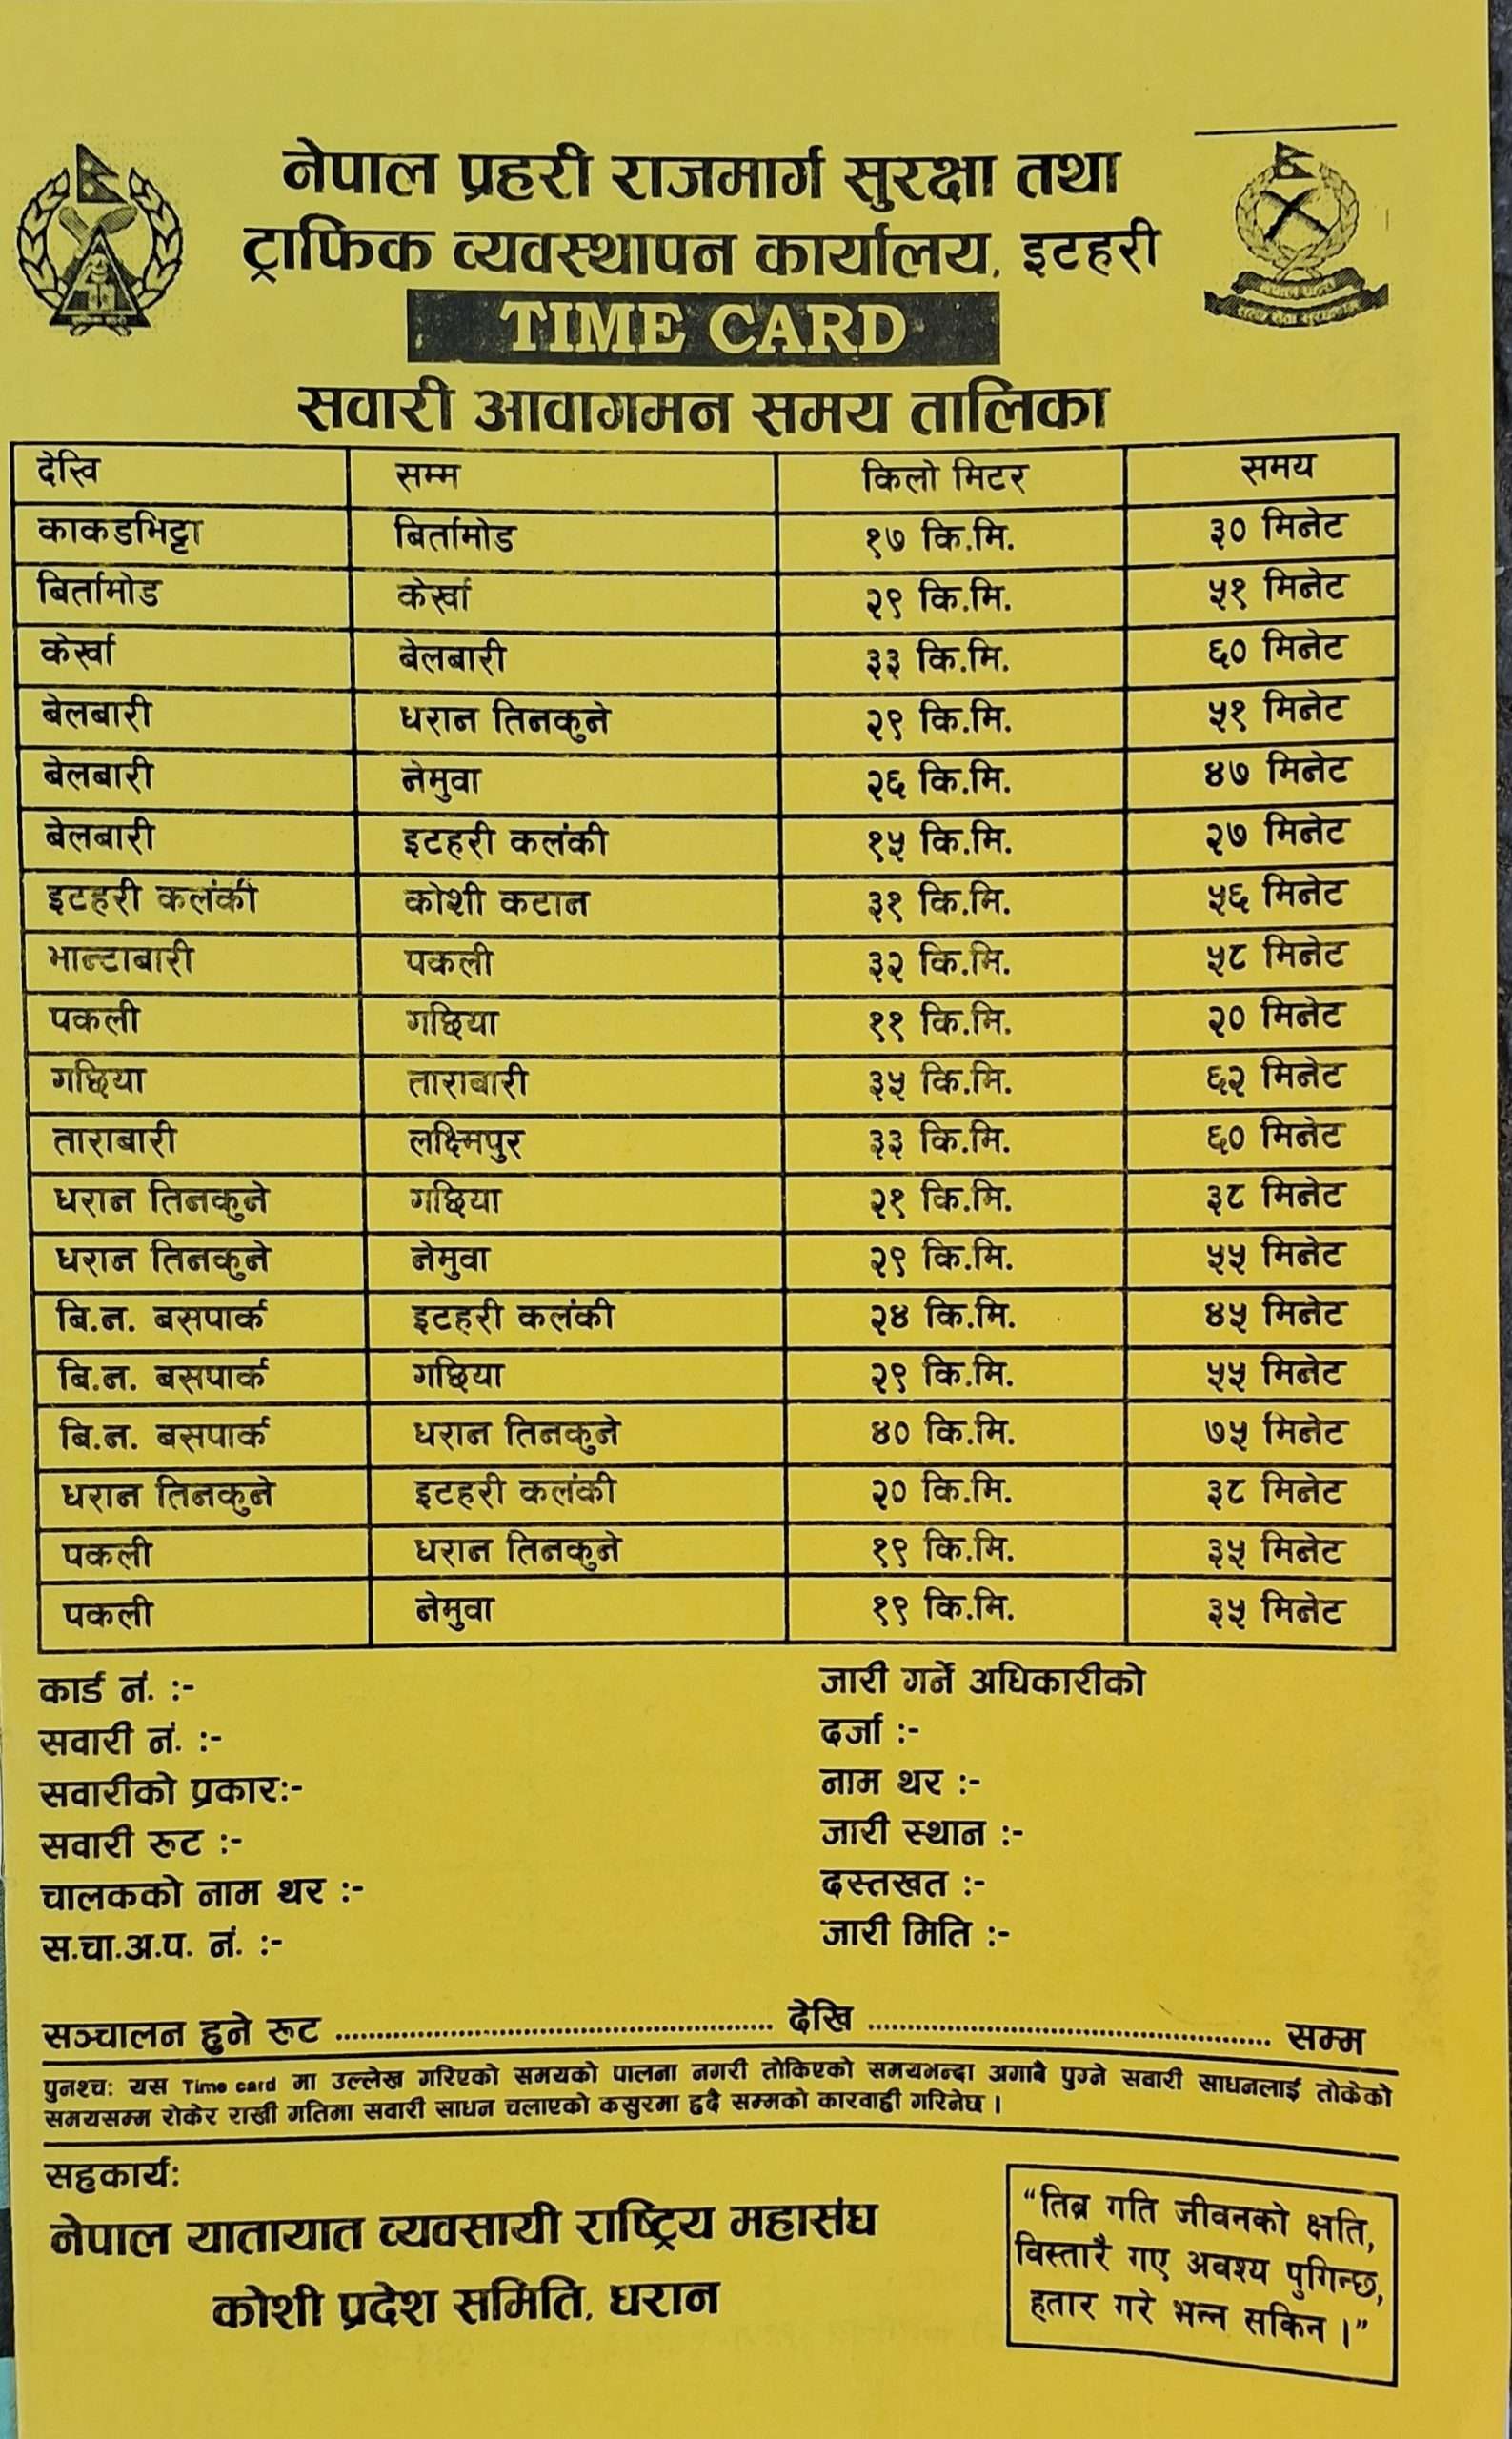 नेपाल प्रहरी राजमार्ग सुरक्षा तथा
ट्राफिक व्यवस्थापन कार्यालय, इटहरी
TIME CARD
सवारी आवागमन समय तालिका
देखि सम्म किलो मिटर समय
काकडभिट्टा बिर्तामोड १७ कि.मि. ३० मिनेट
बिर्तामोड केर्खा २९ कि.मि. ५१ मिनेट
केर्खा बेलबारी ३३ कि.मि. ६० मिनेट
बेलबारी धरान तिनकुने २९ कि.मि. ५१ मिनेट
बेलबारी नेमुवा २६ कि.मि. ४७ मिनेट
बेलबारी इटहरी कलंकी १५ कि.मि. २७ मिनेट
इटहरी कलंकी कोशी कटान ३१ कि.मि. ५६ मिनेट
भान्टाबारी पकली ३२ कि.मि. ५८ मिनेट
पकली गछिया ११ कि.मि. २० मिनेट
गछिया ताराबारी ३५ कि.मि. ६२ मिनेट
ताराबारी लक्ष्मिपुर ३३ कि.मि. ६० मिनेट
धरान तिनकुने गछिया २१ कि.मि. ३८ मिनेट
धरान तिनकुने नेमुवा २९ कि.मि. ५५ मिनेट
बि.न. बसपार्क इटहरी कलंकी २४ कि.मि. ४५ मिनेट
बि.न. बसपार्क गछिया २९ कि.मि. ५५ मिनेट
बि.न. बसपार्क धरान तिनकुने ४० कि.मि. ७५ मिनेट
धरान तिनकुने इटहरी कलंकी २० कि.मि. ३८ मिनेट
पकली धरान तिनकुने १९ कि.मि. ३५ मिनेट
पकली नेमुवा १९ कि.मि. ३५ मिनेट
कार्ड नं. :-
सवारी नं. :-
सवारीको प्रकार:-
सवारी रूट :-
चालकको नाम थर :-
स.चा.अ.प. नं. :-
जारी गर्ने अधिकारीको
दर्जा :-
नाम थर :-
जारी स्थान :-
दस्तखत :-
जारी मिति :-
सञ्चालन हुने रूट ........................ देखि ........................ सम्म
पुनश्च: यस Time card मा उल्लेख गरिएको समयको पालना नगरी तोकिएको समयभन्दा अगाबै पुग्ने सवारी साधनलाई तोकेको
समयसम्म रोकेर राखी गतिमा सवारी साधन चलाएको कसुरमा हदै सम्मको कारवाही गरिनेछ ।
सहकार्य:
नेपाल यातायात व्यवसायी राष्ट्रिय महासंघ
कोशी प्रदेश समिति, धरान
“तिब्र गति जीवनको क्षति,
विस्तारै गए अवश्य पुगिन्छ,
हतार गरे भन्न सकिन ।”